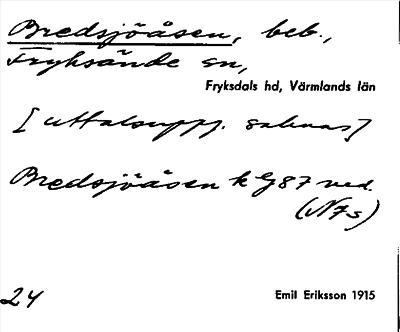 Bredsjöåsen, beb.,
Fryksände sn,
Fryksdals hd, Värmlands län
[uttalsuppg. saknas]
Bredsjöåsen k Eg 87 ned.
(N7s)
24
Emil Eriksson 1915